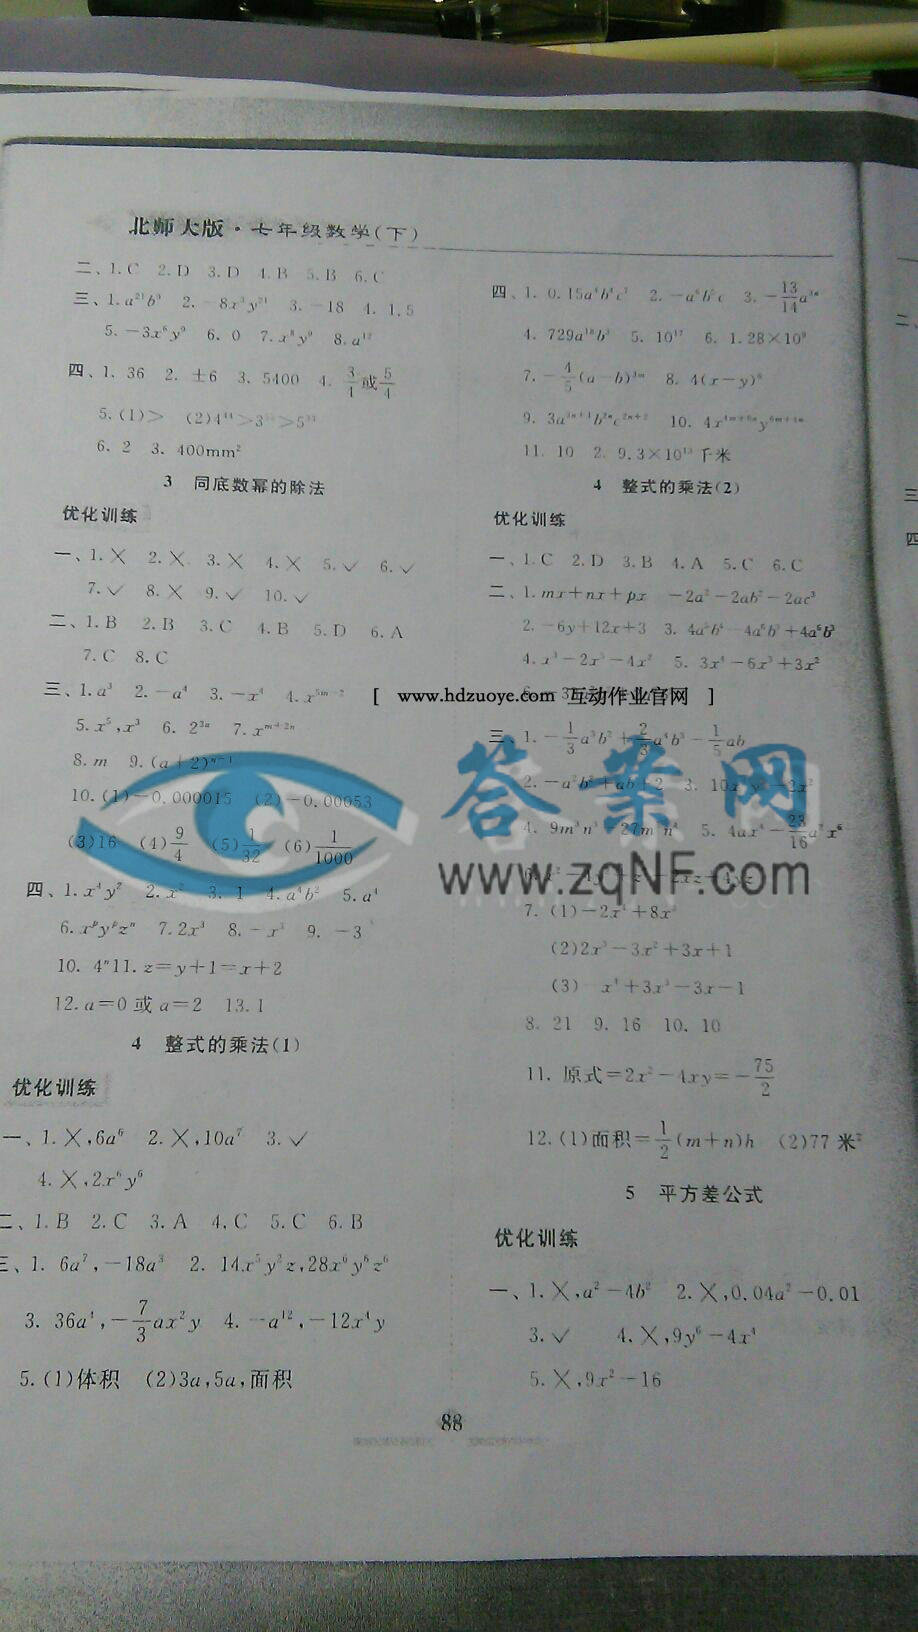 北师大版·七年级数学(下)
二、1.C 2.D 3.D 4.B 5.B 6.C
三、1.a²¹b⁹ 2.-8x³y²¹ 3.-18 4.1.5
5.-3x⁶y⁹ 6.0 7.x⁸y⁹ 8.a¹²
四、1.36 2.±6 3.5400 4.3/4或5/4
5.(1)> (2)4⁴⁴>3⁵⁵>5³³
6.2 3.400mm²
3 同底数幂的除法
优化训练
一、1.╳ 2.╳ 3.╳ 4.╳ 5.✓ 6.✓
7.✓ 8.╳ 9.✓ 10.✓
二、1.B 2.B 3.C 4.B 5.D 6.A
7.C 8.C
三、1.a³ 2.-a⁴ 3.-x⁴ 4.x⁵ᵐ⁻²
5.x⁵,x³ 6.2³ᵃ 7.xᵐ⁺²ⁿ
8.m 9.(a+2)ⁿ⁻¹
10.(1)-0.000015 (2)-0.00053
(3)16 (4)9/4 (5)1/32 (6)1/1000
四、1.x⁴y² 2.x² 3.1 4.a⁴b² 5.a⁴
6.xᵖyᵖzⁿ 7.2x³ 8.-x³ 9.-3
10.4ⁿ11.z=y+1=x+2
12.a=0或a=2 13.1
4 整式的乘法(1)
优化训练
一、1.╳,6a⁶ 2.╳,10a⁷ 3.✓
4.╳,2x⁶y⁶
二、1.B 2.C 3.A 4.C 5.C 6.B
三、1.6a⁷,-18a³ 2.14x⁵y²z,28x⁶y⁶z⁶
3.36a⁴,-7/3ax²y 4.-a¹²,-12x⁴y
5.(1)体积 (2)3a,5a,面积
四、1.0.15a⁴b⁴c² 2.-a⁶b⁵c 3.-13/14a³ⁿ
4.729a¹⁸b³ 5.10¹⁷ 6.1.28×10⁹
7.-4/5(a-b)³ᵐ 8.4(x-y)⁶
9.3a³ⁿ⁺¹b²ⁿc²ⁿ⁺²
11.10 2.9.3×10¹³千米
4 整式的乘法(2)
优化训练
一、1.C 2.D 3.B 4.A 5.C 6.C
二、1.mx+nx+px -2a²-2ab²-2ac³
2.-6y+12x+3 3.4a⁵b⁴-4a⁶b³+4a⁶b³
4.x³-2x³-4x² 5.3x⁴-6x³+3x²
[ www.hdzuoye.com 互动作业官网 ]
三、1.-1/3a³b²+2/3a⁴b³-1/5ab
2.-a²b²+ab+2 3.
4.9m³n³ 5.4ax⁴-23/16a⁷x⁶
答案网
www.zqNF.com
7.(1)-2x⁴+8x²
(2)2x³-3x²+3x+1
(3) x⁴+3x³-3x-1
8.21 9.16 10.10
11.原式=2x²-4xy=-75/2
12.(1)面积=1/2(m+n)h (2)77米²
5 平方差公式
优化训练
一、1.╳,a²-4b² 2.╳,0.04a²-0.01
3.✓ 4.╳,9y⁶-4x⁴
5.╳,9x²-16
88
二、
三
四